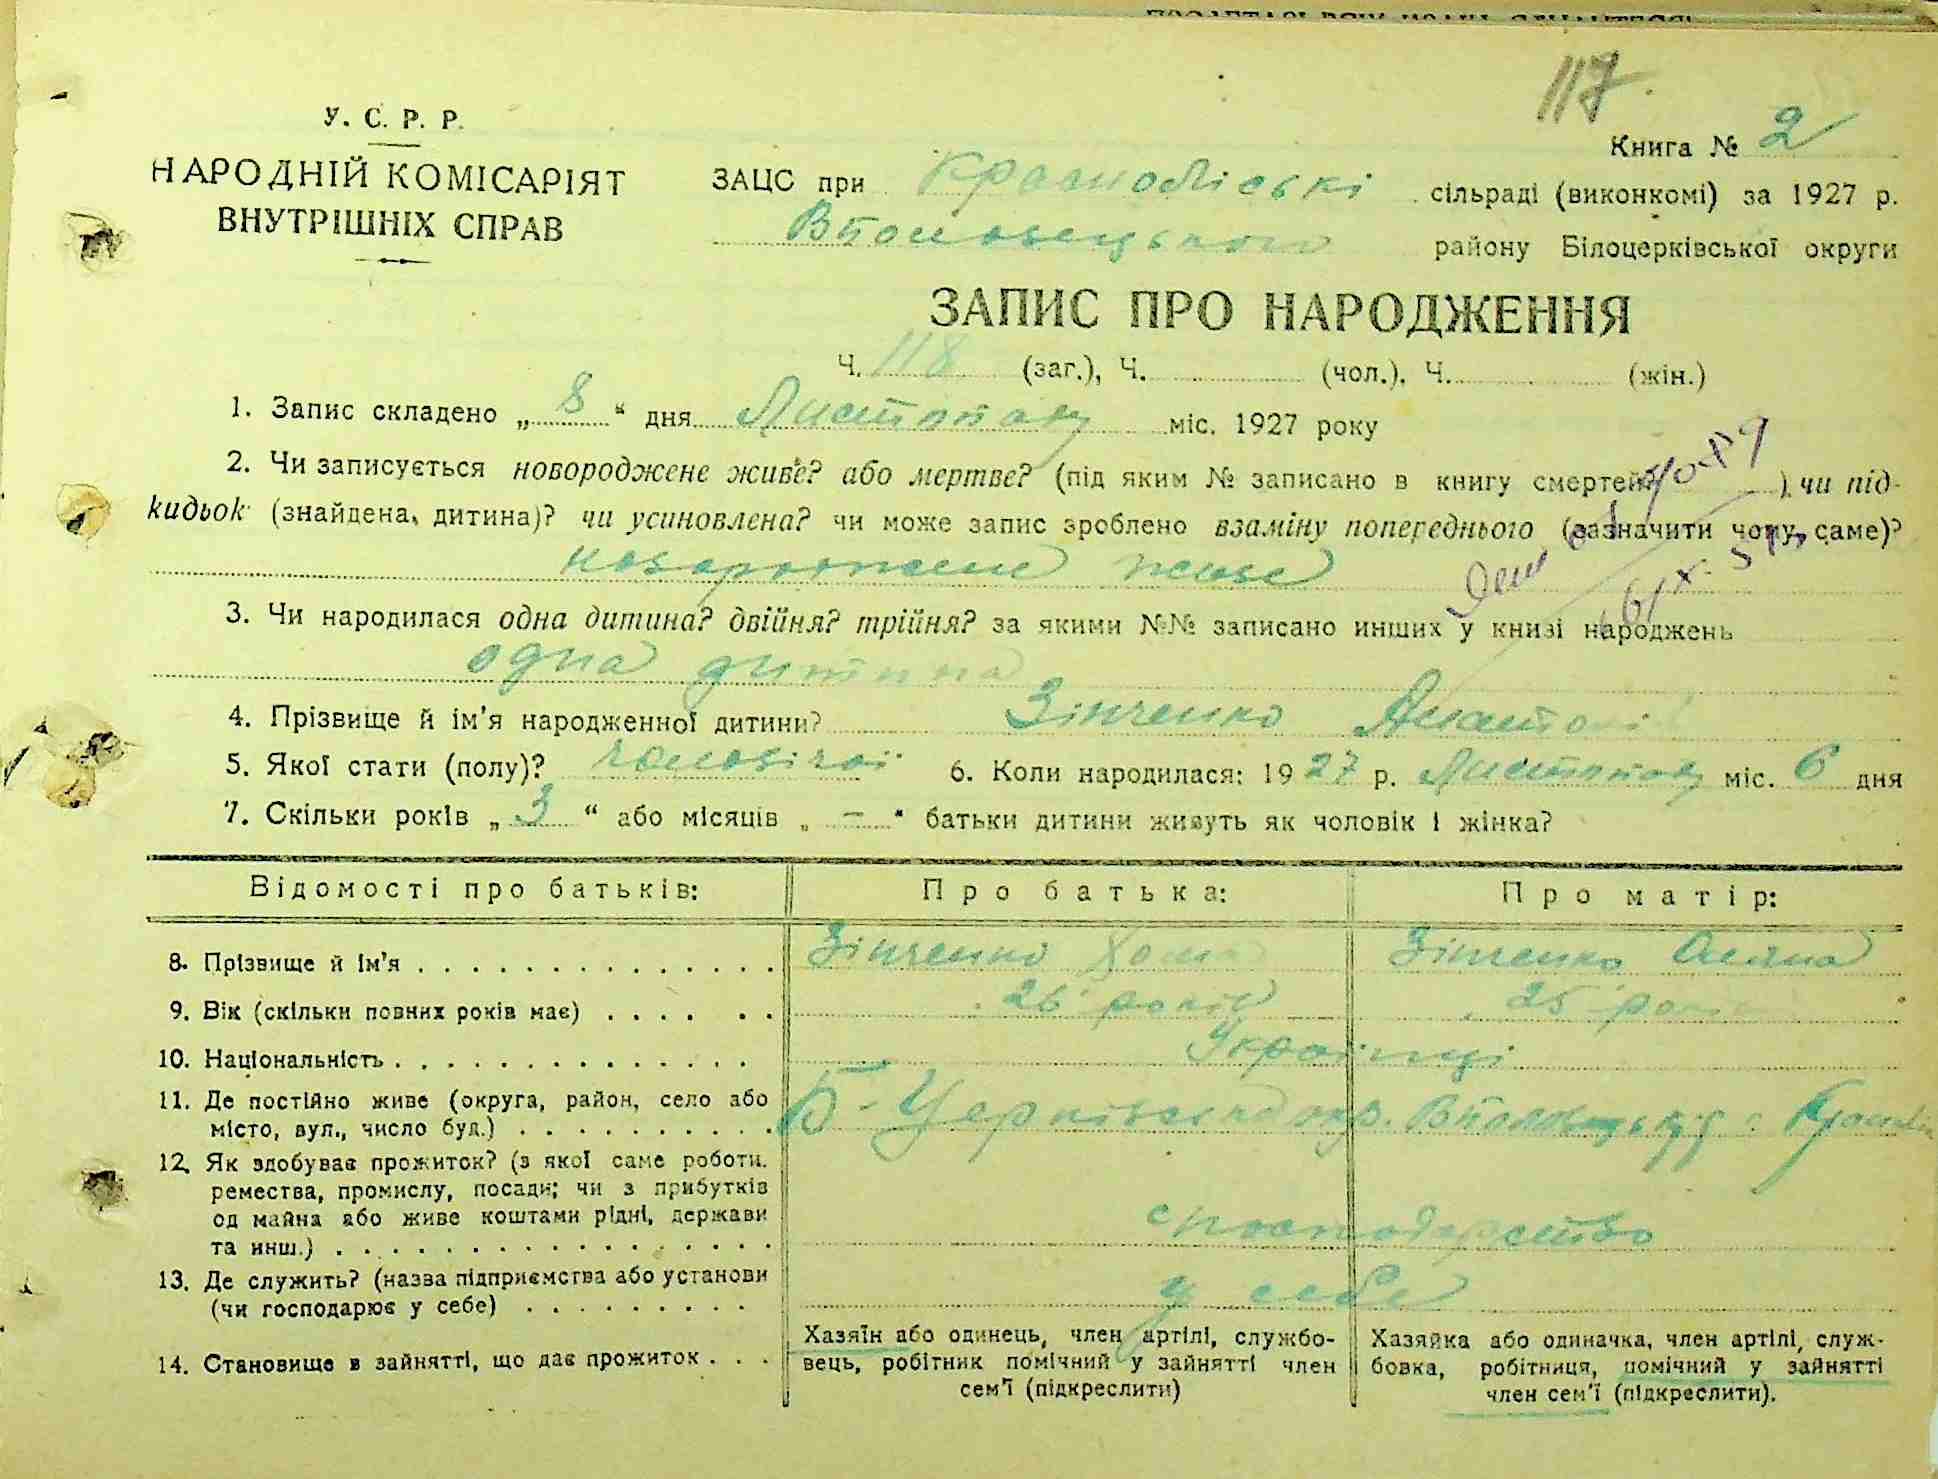 117.
У. С. Р. Р.
НАРОДНІЙ КОМІСАРІЯТ
ВНУТРІШНІХ СПРАВ
Книга № 2
ЗАЦС при сільраді (виконкомі) за 1927 р.
району Білоцерківської округи
ЗАПИС ПРО НАРОДЖЕННЯ
Ч. 118 (заг.), Ч. (чол.), Ч. (жін.)
1. Запис складено „ 8 “ дня Листопаду міс. 1927 року
2. Чи записується новороджене живе? або мертве? (під яким № записано в книгу смертей ), чи під-
кидьок (знайдена, дитина)? чи усиновлена? чи може запис зроблено взаміну попереднього (зазначити чому, саме)?
новороджене живе
3. Чи народилася одна дитина? двійня? трійня? за якими №№ записано инших у книзі народжень
одна дитина
4. Прізвище й ім'я народженної дитини? Зінченко
5. Якої стати (полу)? чоловічої 6. Коли народилася: 1927 р. Листопаду міс. 6 дня
7. Скільки років „ 3 “ або місяців „ – “ батьки дитини живуть як чоловік і жінка?
Відомості про батьків: Про батька: Про матір:
8. Прізвище й ім'я . . . . . . . . . . . . . . . Зінченко Хома Зінченко
9. Вік (скільки повних років має) . . . . . . 26 років 25 років
10. Національність . . . . . . . . . . . . . . Українці
11. Де постійно живе (округа, район, село або
місто, вул., число буд.) . . . . . . . . . . . Б-Церківська окр.
12. Як здобуває прожиток? (з якої саме роботи,
ремества, промислу, посади; чи з прибутків
од майна або живе коштами рідні, держави
та инш.) . . . . . . . . . . . . . . . . . господарство
13. Де служить? (назва підприємства або установи
(чи господарює у себе) . . . . . . . . . у себе
14. Становище в зайнятті, що дає прожиток . . .
Хазяїн або одинець, член артілі, службо-
вець, робітник помічний у зайнятті член
сем'ї (підкреслити)
Хазяйка або одиначка, член артілі, служ-
бовка, робітниця, помічний у зайнятті
член сем'ї (підкреслити).